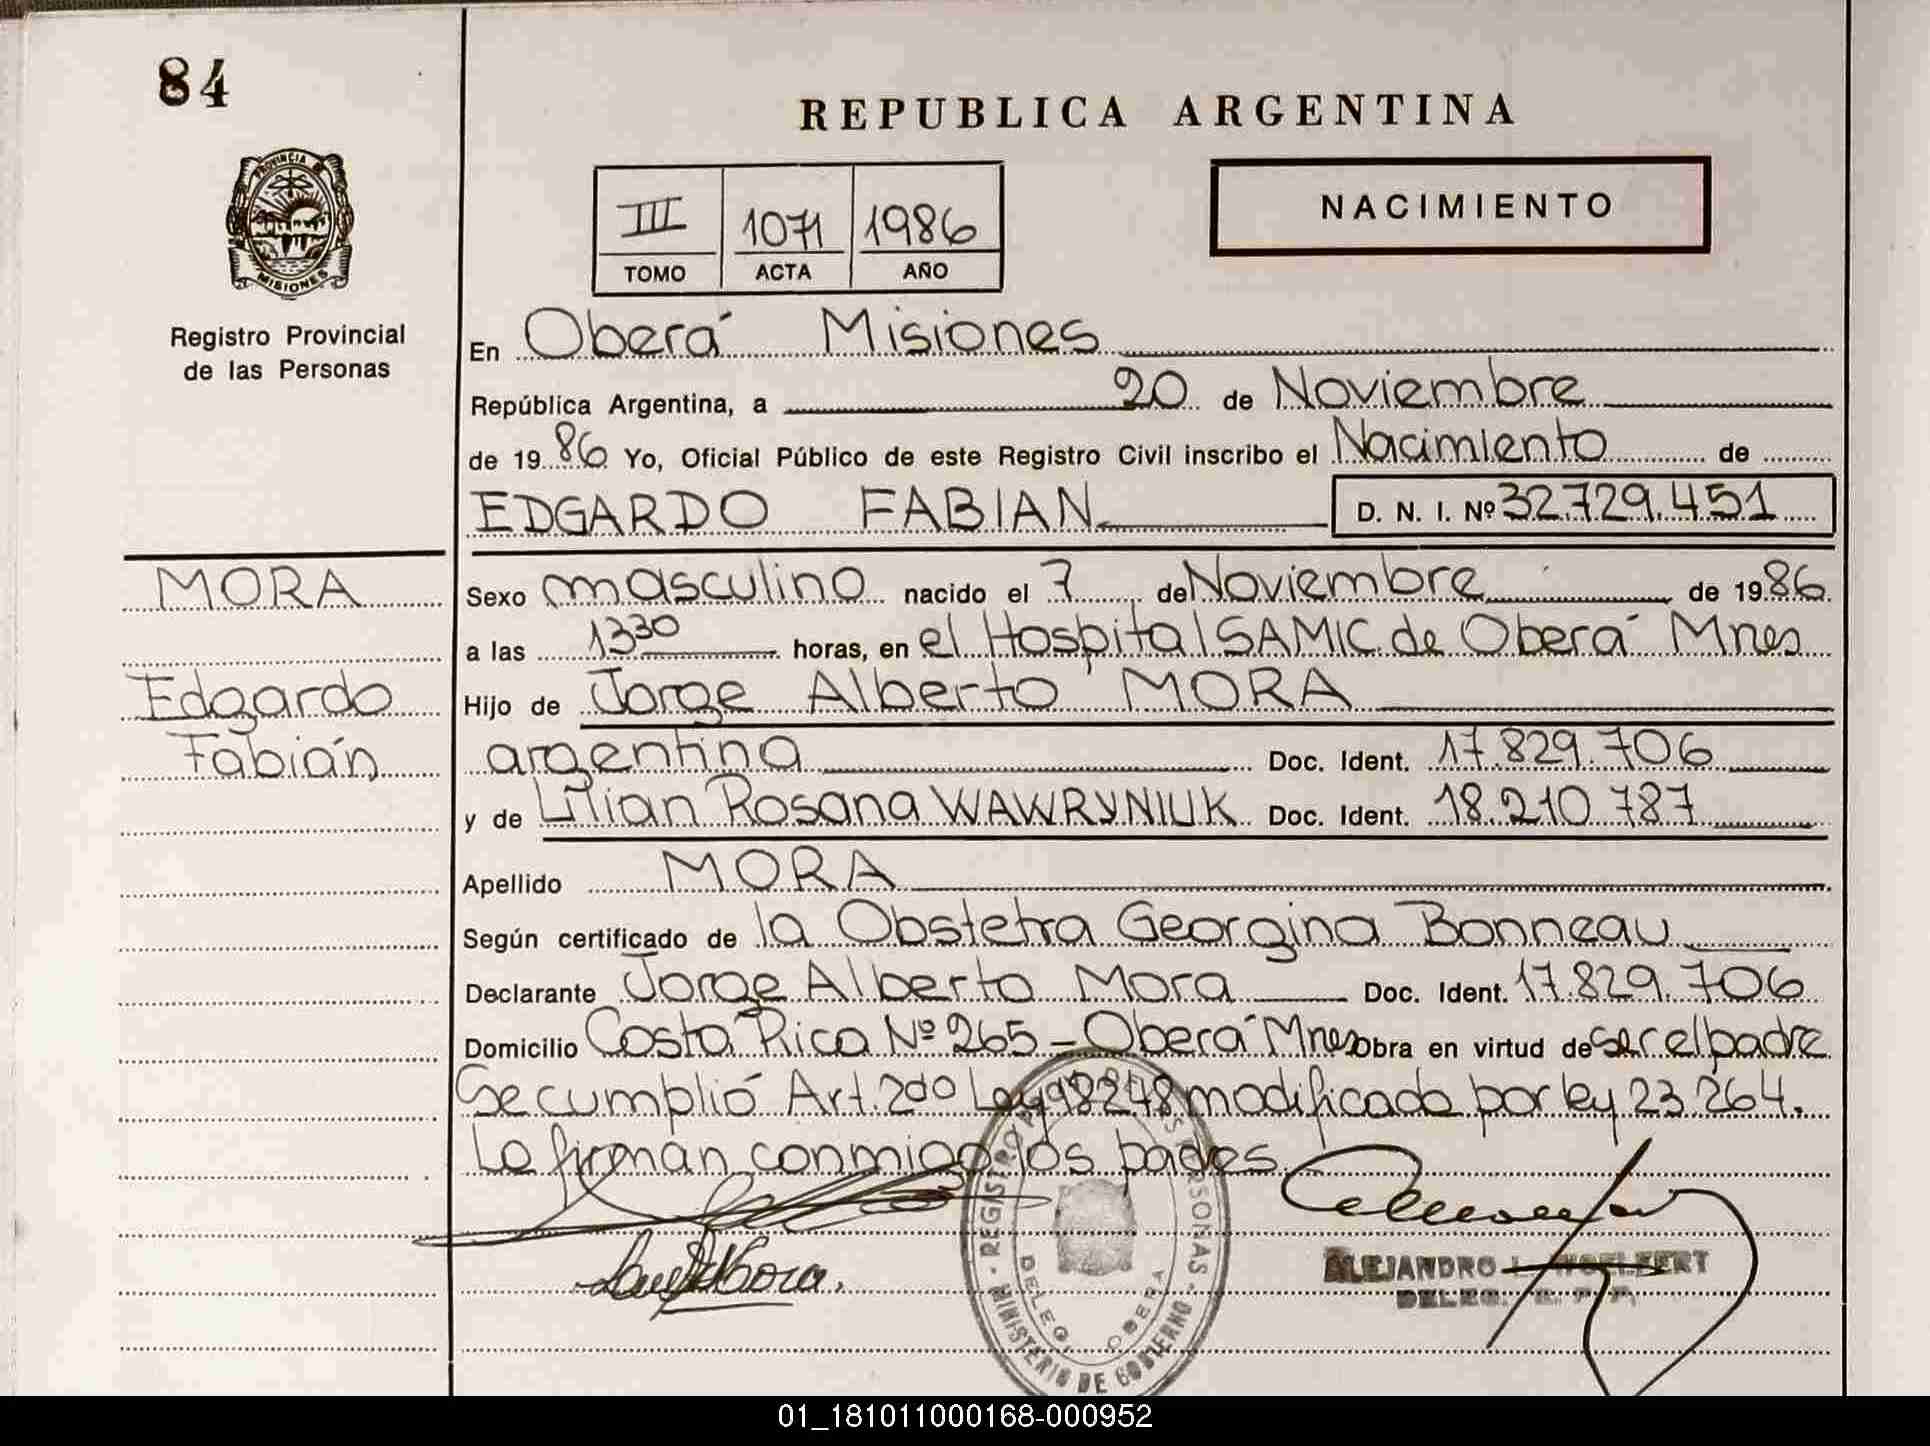 84
REPUBLICA ARGENTINA
PROVINCIA DE
MISIONES
III 1071 1986
TOMO ACTA AÑO
NACIMIENTO
Registro Provincial
de las Personas
En Oberá Misiones
República Argentina, a 20 de Noviembre
de 1986 Yo, Oficial Público de este Registro Civil inscribo el Nacimiento de
EDGARDO FABIAN D. N. I. Nº 32.729.451
MORA
Edgardo
Fabián
Sexo masculino nacido el 7 de Noviembre de 1986
a las 13 30 horas, en el Hospital SAMIC de Oberá Mnes
Hijo de Jorge Alberto MORA
argentina Doc. Ident. 17.829.706
y de Lilian Rosana WAWRYNIUK Doc. Ident. 18.210.787
Apellido MORA
Según certificado de la Obstetra Georgina Bonneau
Declarante Jorge Alberto Mora Doc. Ident. 17.829.706
Domicilio Costa Rica Nº 265 - Oberá Mnes Obra en virtud de ser el padre
Se cumplió Art. 2do Ley 18248 modificado por ley 23.264.
Lo firman conmigo los padres
REGISTRO PERSONAS
MINISTERIO DE GOBIERNO
DELEG. OBERA
ALEJANDRO L. WOELFERT
DELEG. R. P. P.
01_181011000168-000952